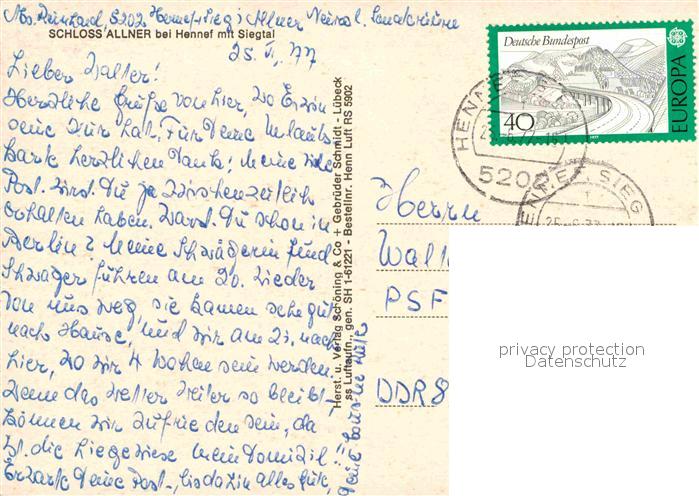 Hennef-Sieg, Allner
SCHLOSS ALLNER bei Hennef mit Siegtal
25. 77
Lieber Walter!
Herzliche Grüße von hier, wo Erwin
seine Kur hat. Für Deine Urlaubs
karte herzlichen Dank! Meine
Post wirst Du ja zwischenzeitlich
erhalten haben. Warst Du schon in
Berlin? Meine Schwägerin und
Schwager fuhren am 20. wieder
von uns weg, sie kamen sehr gut
nach Hause, und wir am 21. nach
hier, wo wir 4 Wochen sein werden.
Wenn das Wetter weiter so bleibt
können wir zufrieden sein, da
ist die Liegewiese mein Domizil!!
Erwarte Deine Post, bis dahin alles Gute,
Herst. u. Verlag Schöning & Co + Gebrüder Schmidt - Lübeck
ss Luftaufn., gen. SH 1-61221 - Bestellnr. Henn Luft RS 5902
Deutsche Bundespost
40
1977
EUROPA
5202
HENNEF, SIEG
Herrn
PSF
DDR 8
privacy protection
Datenschutz